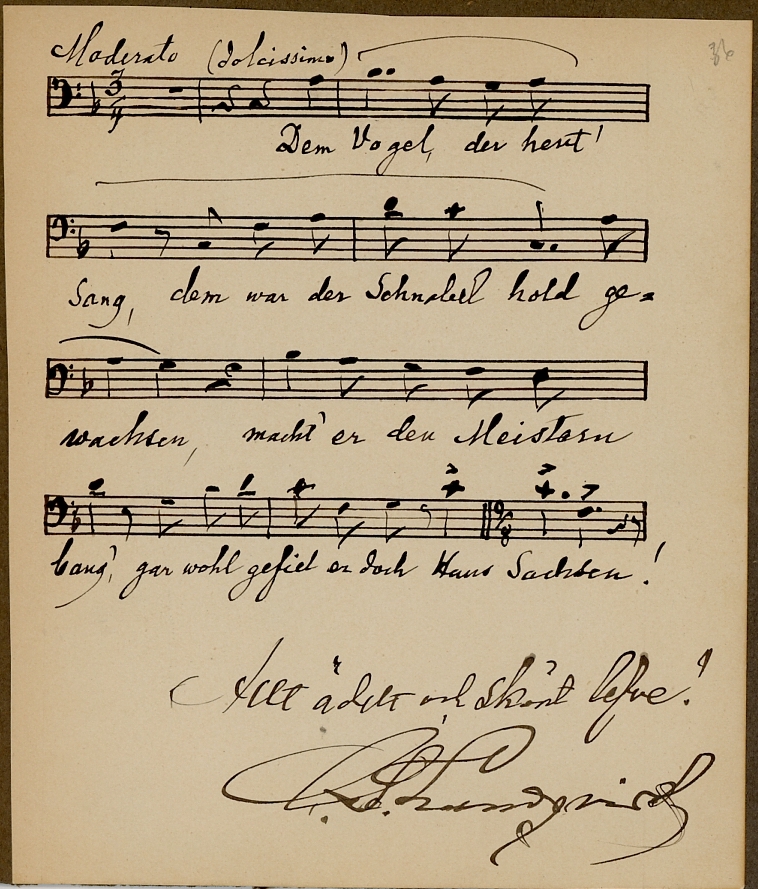 Moderato (dolcissimo) 36
Dem Vogel, der heut'
Sang, dem war der Schnabel hold ge=
wachsen, macht' er den Meistern
bang', gar wohl gefiel er doch Hans Sachsen!
Allt ädelt och skönt lefve!
C. F. Lundqvist